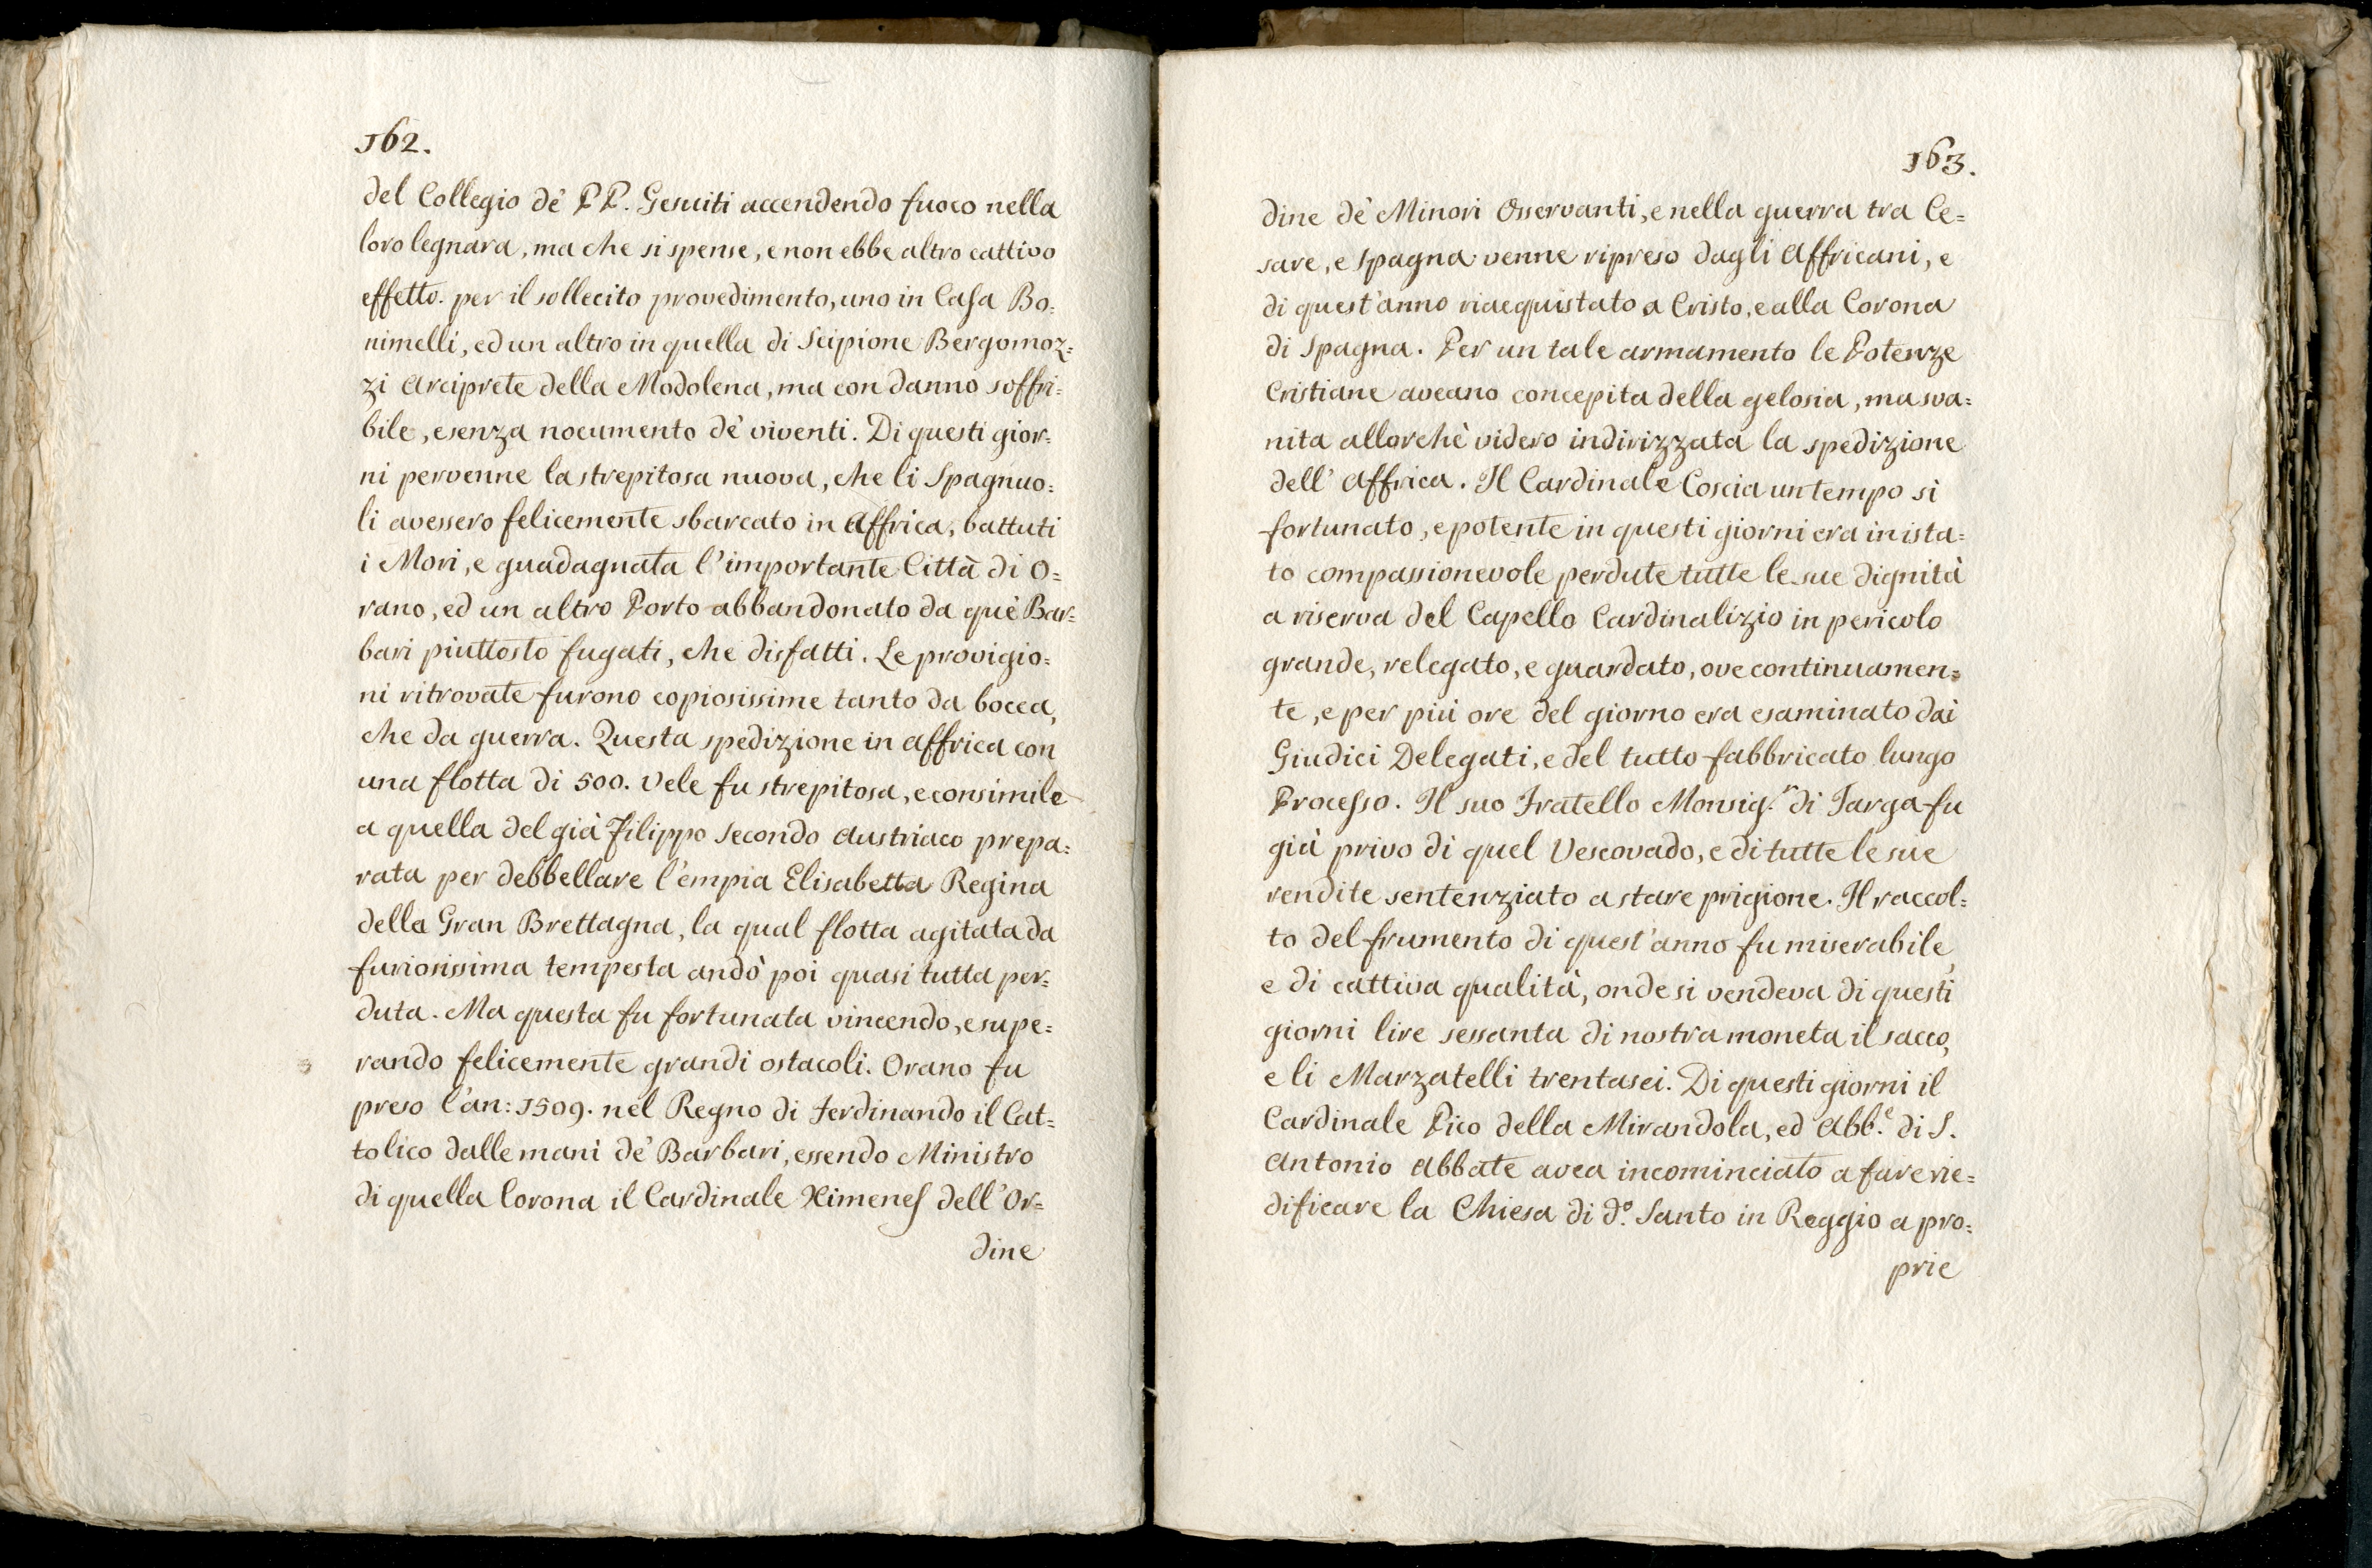 162.
del Collegio de' PP. Gesuiti accendendo fuoco nella
loro legnara, ma che si spense, e non ebbe altro cattivo
effetto. per il sollecito provedimento, uno in Casa Bo=
nimelli, ed un altro in quella di Scipione Bergomoz=
zi Arciprete della Modolena, ma con danno soffri=
bile, e senza nocumento de' viventi. Di questi gior=
ni pervenne la strepitosa nuova, che li Spagnuo=
li avessero felicemente sbarcato in Affrica, battuti
i Mori, e guadagnata l'importante Città di O=
rano, ed un altro Porto abbandonato da que' Bar=
bari piuttosto fugati, che disfatti. Le provigio=
ni ritrovate furono copiosissime tanto da bocca,
che da guerra. Questa spedizione in Affrica con
una flotta di 500. Vele fu strepitosa, e consimile
a quella del già Filippo Secondo Austriaco prepa=
rata per debbellare l'empia Elisabetta Regina
della Gran Brettagna, la qual flotta agitata da
furiosissima tempesta andò poi quasi tutta per=
duta. Ma questa fu fortunata vincendo, e supe=
rando felicemente grandi ostacoli. Orano fu
preso l'an: 1509. nel Regno di Ferdinando il Cat=
tolico dalle mani de' Barbari, essendo Ministro
di quella Corona il Cardinale Ximenes dell'Or=
dine
163.
dine de' Minori Osservanti, e nella guerra tra Ce=
sare, e Spagna venne ripreso dagli Affricani, e
di quest'anno riacquistato a Cristo, e alla Corona
di Spagna. Per un tale armamento le Potenze
Cristiane aveano concepita della gelosia, ma sva=
nita allorchè videro indirizzata la spedizione
dell'Affrica. Il Cardinale Coscia un tempo si
fortunato, e potente in questi giorni era in ista=
to compassionevole perdute tutte le sue dignità
a riserva del Capello Cardinalizio in pericolo
grande, relegato, e guardato, ove continuamen=
te, e per più ore del giorno era esaminato dai
Giudici Delegati, e del tutto fabbricato lungo
Processo. Il suo Fratello Monsig.r di Targa fu
già privo di quel Vescovado, e di tutte le sue
rendite sentenziato a stare prigione. Il raccol=
to del frumento di quest'anno fu miserabile,
e di cattiva qualità, onde si vendeva di questi
giorni lire sessanta di nostra moneta il sacco,
e li Marzatelli trentasei. Di questi giorni il
Cardinale Pico della Mirandola, ed Abb.e di S.
Antonio Abbate avea incominciato a fare rie=
dificare la Chiesa di d.o Santo in Reggio a pro=
prie